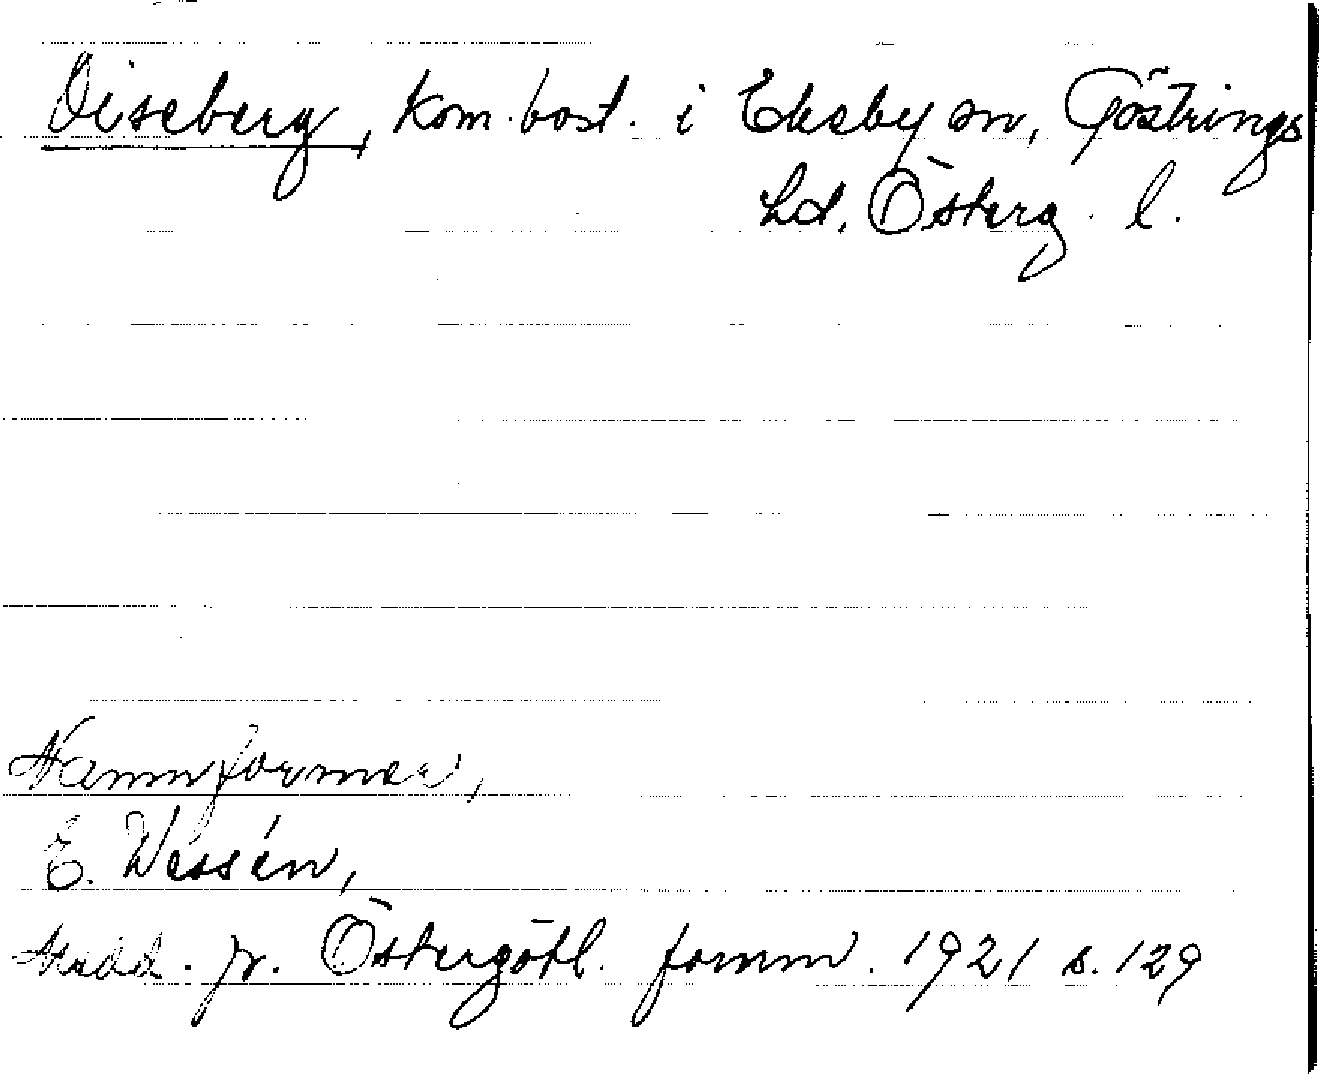 Diseberg, kom. bost. i Ekeby sn, Göstrings
hd. Österg. l.
Namnformer,
E. Wessén,
Medd. fr. Östergötl. fornm. 1921 s. 129